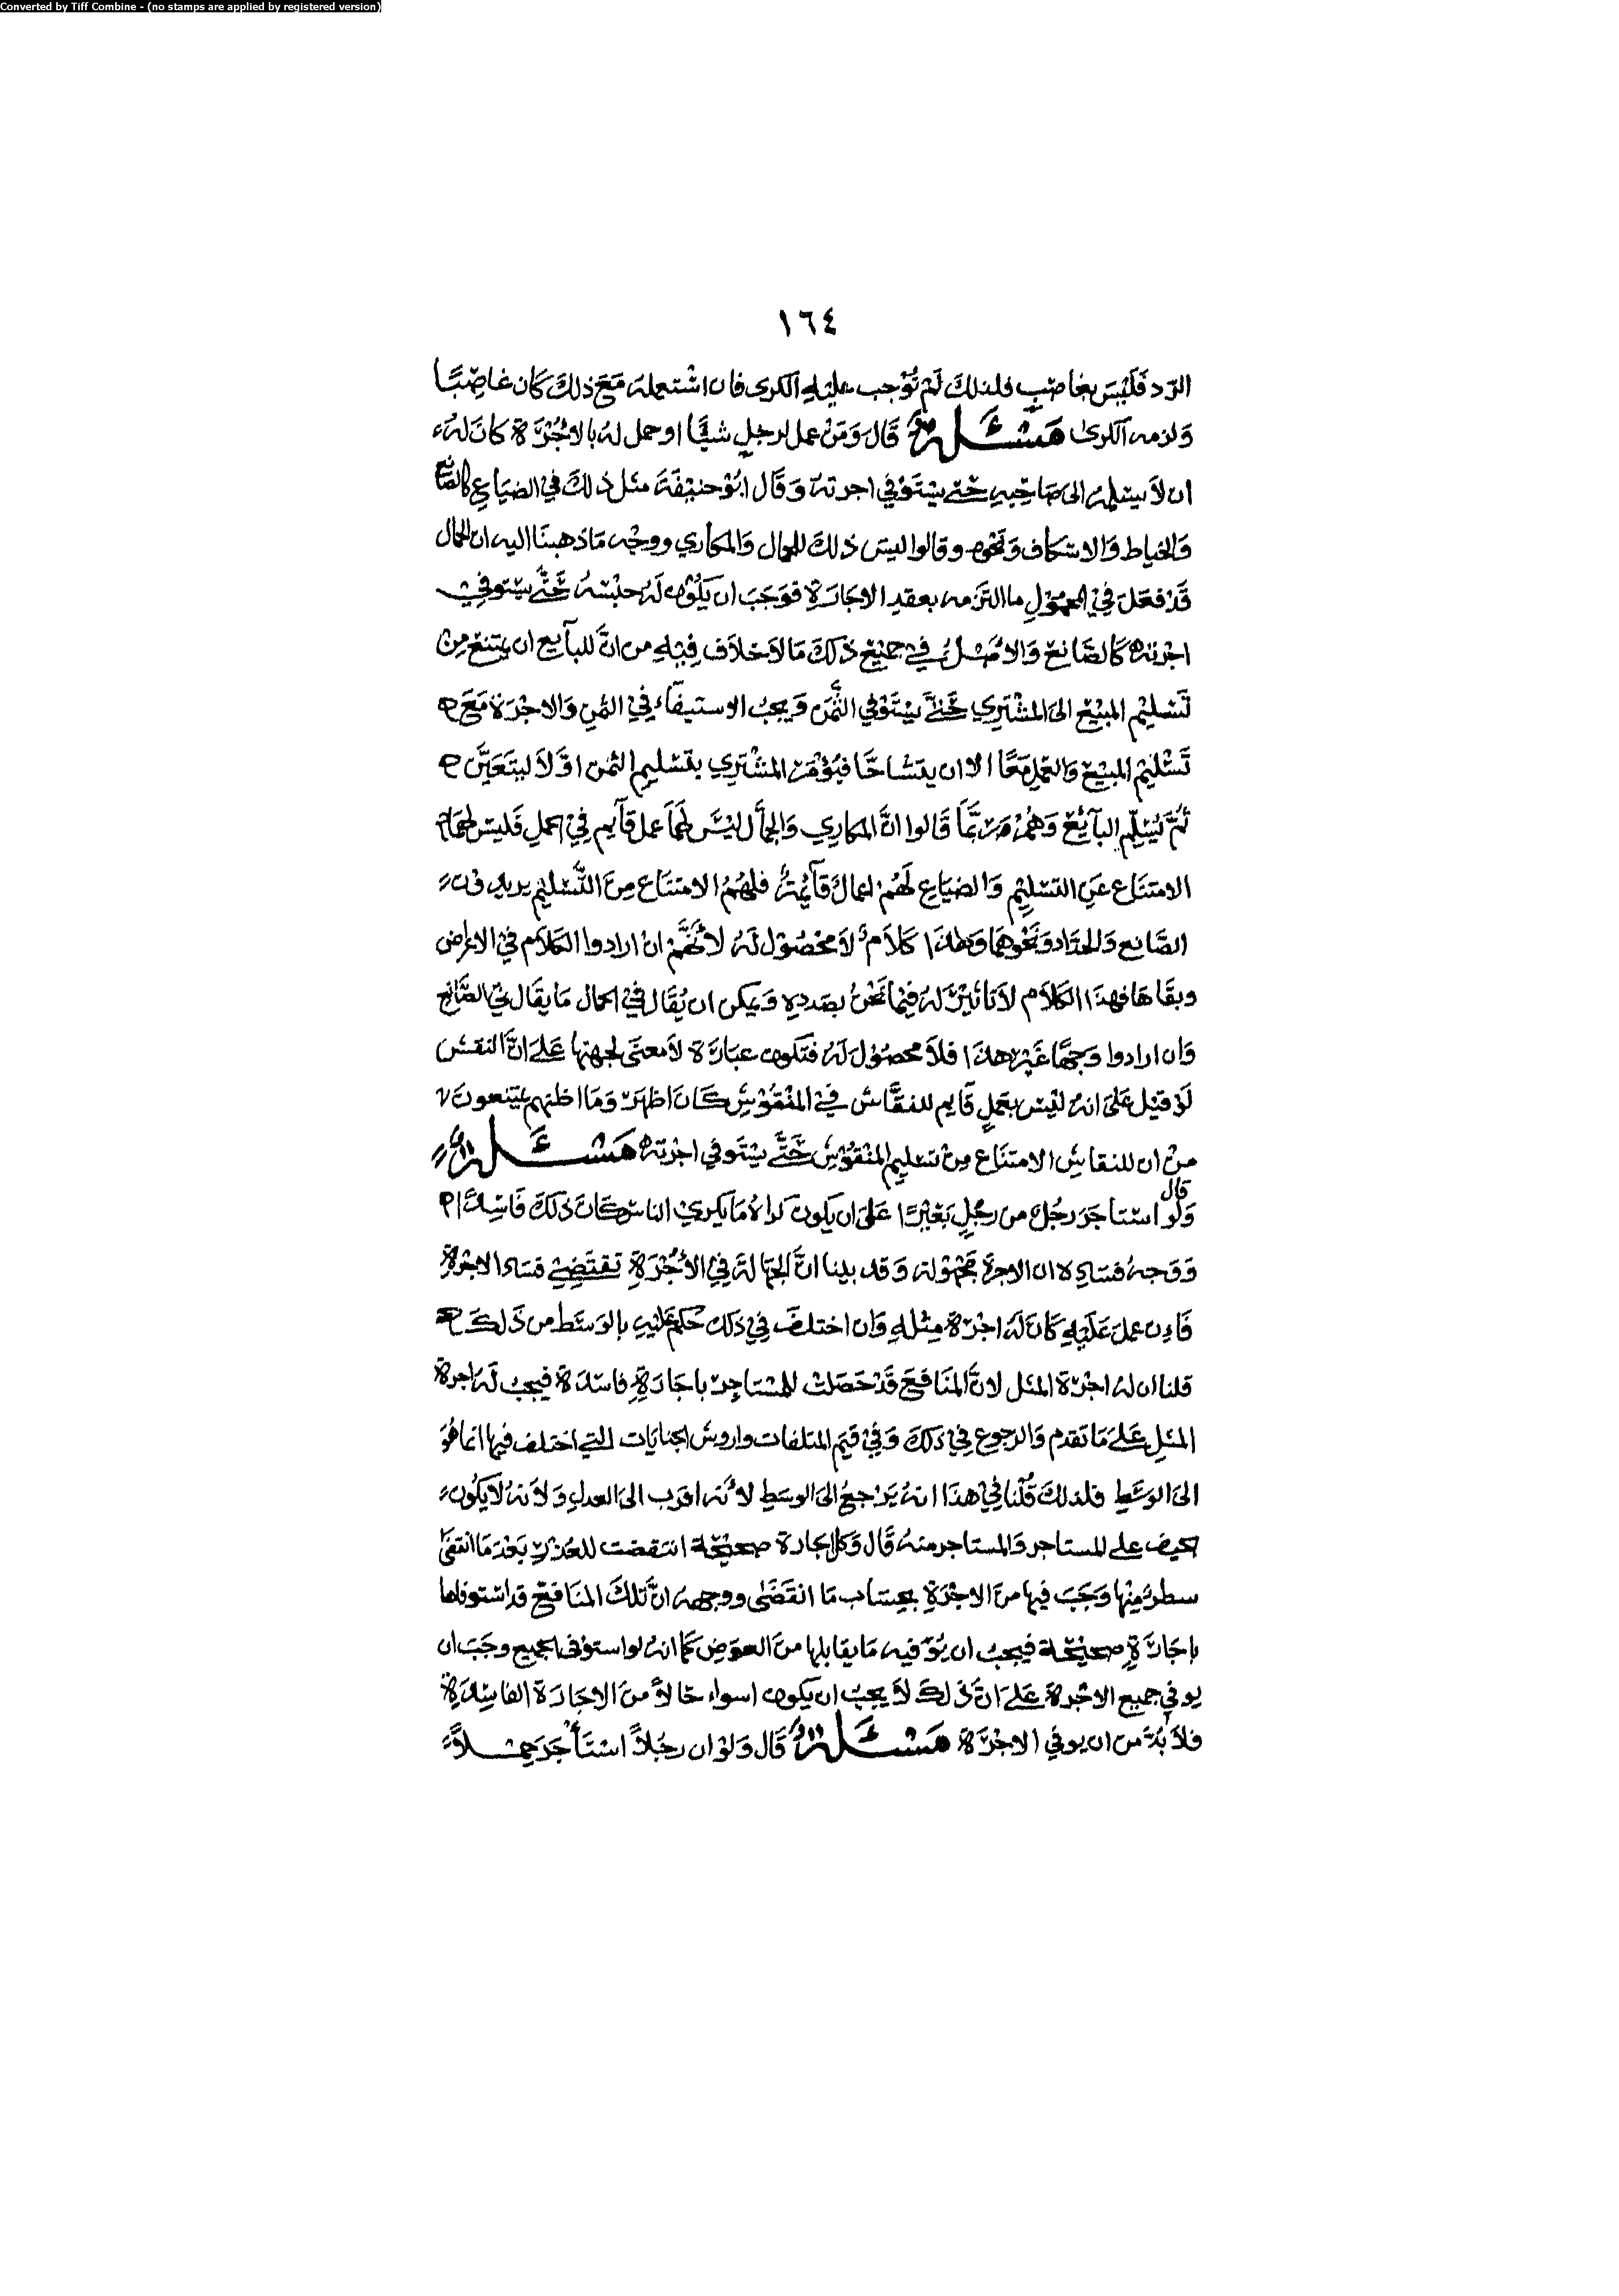 Converted by Tiff Combine - (no stamps are applied by registered version)
١٦٤
الرد فليس بغاصب فلذلك لم نوجب عليه الكرى فان اشتعمله مع ذلك كان غاصبًا
ولزمه الكرى مسئلة قال ومن عمل لرجل شيئًا او حمل له بالاجرة كان له
ان لا يسلمه الى صاحبه حتى يستوفي اجرته وقال ابو حنيفة مثل ذلك في الصناع كالصانع
والخياط والاسكاف ونحوه وقالوا ليس ذلك للجمال والمكاري ووجه ما ذهبنا اليه ان الجمال
قد فعل في المحمول ما التزمه بعقد الاجارة فوجب ان يكون له حبسه حتى يستوفي
اجرته كالصانع والاصل في جميع ذلك ما لا خلاف فيه من ان للبآيع ان يمتنع من
تسليم المبيع الى المشتري حتى يستوفي الثمن ويجب الاستيفآء في الثمن والاجرة مع
تسليم المبيع والعمل معًا الا ان يتشاحّا فيؤمر المشتري بتسليم الثمن اوّلا ليتعيّن
ثم يسلم البآئع وهم ربّما قالوا انّ المكاري والجمّال ليس لهما عمل قآيم في الحمل فليس لهما
الامتناع عن التسليم والصناع لهم اعمال قآئمة فلهم الامتناع من التسليم يريدون
الصانع والحداد ونحوهما وهذا كلام لا محصول له لانّهم ان ارادوا الكلام في الاعراض
وبقاها فهذا الكلام لا تاثير له فيما نحن بصدده ويمكن ان يقال في الحمال ما يقال في الصانع
وان ارادوا وجهًا غير هذا فلا محصول له فتكون عبارة لا معنى لجهتها على انّ النقش
لو قيل على انه ليس بعمل قايم للنقّاش في المنقوش كان اظهر وما اظنهم يمتنعون
من ان للنقاش الامتناع من تسليم المنقوش حتّى يستوفي اجرته مسئلة
قال
ولو استاجر رجل من رجل بعيرًا على ان يكون كراه ما يكري الناس كان ذلك فاسدًا
ووجه فساده ان الاجرة مجهولة وقد بينا انّ الجهالة في الأجرة تقتضي فساد الاجرة
فان عمل عليه كان له اجرة مثله وان اختلف في ذلك حكم عليه بالوسط من ذلك
قلنا ان له اجرة المثل لانّ المنافع قد حصلت للمستاجر باجارة فاسدة فيجب له اجرة
المثل على ما تقدم والرجوع في ذلك وفي قيم المتلفات واروش الجنايات التي اختلف فيها انما هو
الى الوسط فلذلك قلنا في هذا انه يرجع الى الوسط لأنه اقرب الى العدل ولانه لا يكون
يحيف على المستاجر والمستاجر منه قال وكل اجارة صحيحة انتقضت للعذر بعد ما انقضى
شطر منها وجب فيها من الاجرة بحساب ما انقضى ووجهه انّ تلك المنافع قد استوفاها
باجارة صحيحة فيجب ان يوفيه ما يقابلها من العوض كما انه لو استوفى الجميع وجب ان
يوفي جميع الاجرة على انّ ذلك لا يجب ان يكون اسواء حالاً من الاجارة الفاسدة
فلا بدّ من ان يوفي الاجرة مسئلة قال ولو ان رجلاً استأجر جملاً